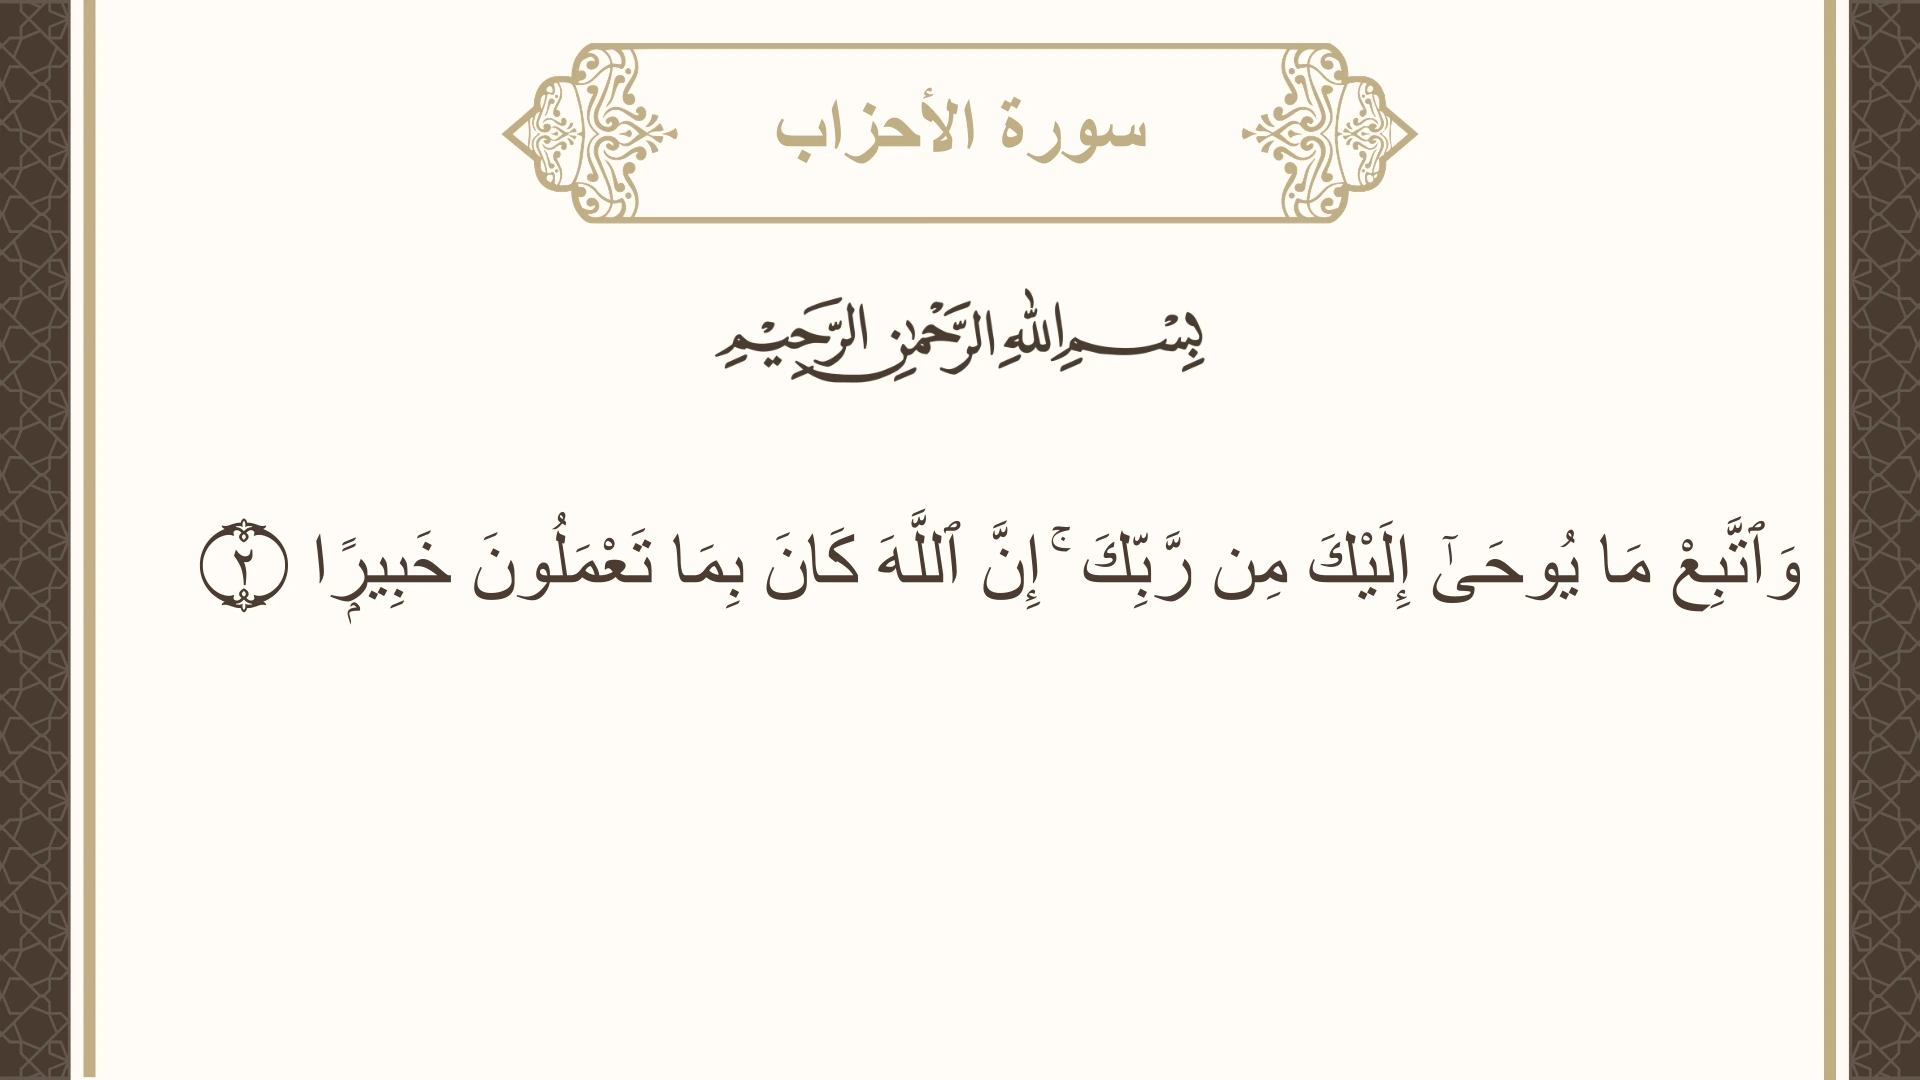 سورة الأحزاب
بِسْمِ اللهِ الرَّحْمٰنِ الرَّحِيْمِ
وَٱتَّبِعْ مَا يُوحَىٰٓ إِلَيْكَ مِن رَّبِّكَ ۚ إِنَّ ٱللَّهَ كَانَ بِمَا تَعْمَلُونَ خَبِيرًۭا ٢